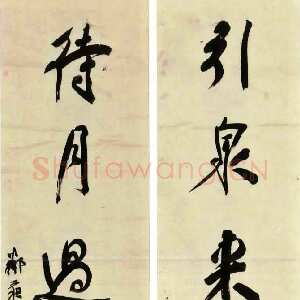 引泉来
待月过
Shufawang.CN